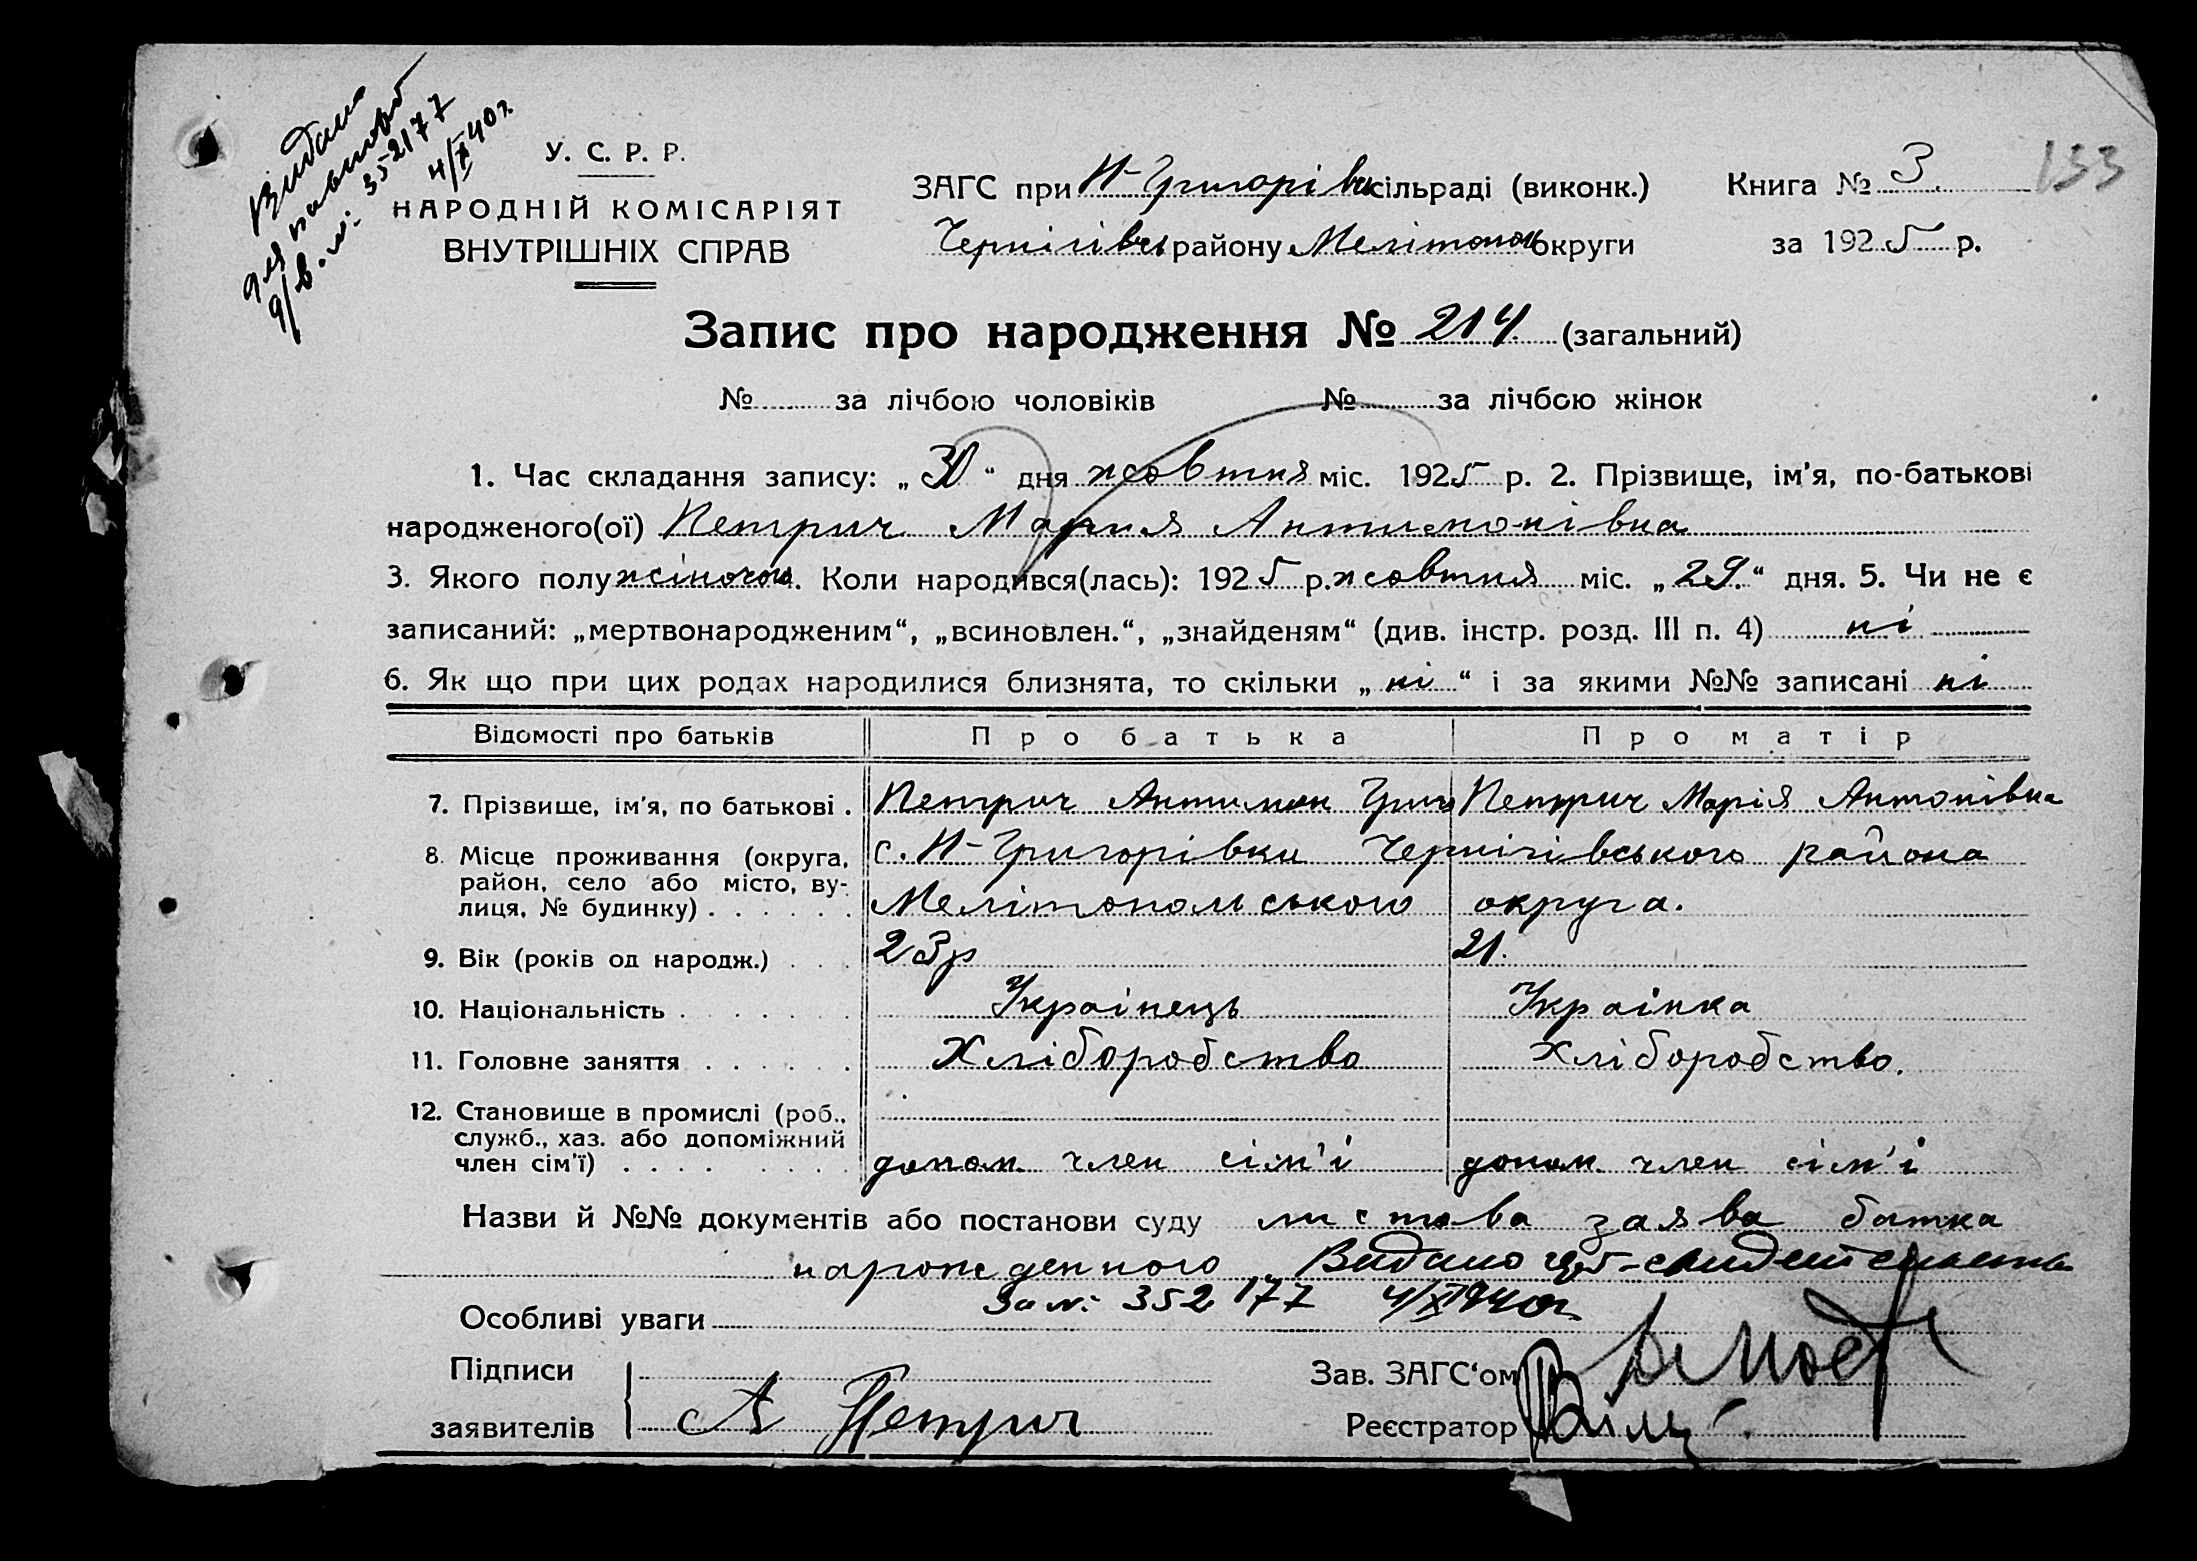 Видано
для паспорт
д/в. №: 352177
4/XI 40 г.
У. С. Р. Р.
НАРОДНІЙ КОМІСАРІЯТ
ВНУТРІШНІХ СПРАВ
ЗАГС при Н-Григорівк сільраді (виконк.)
Книга № 3.
133
Чернігівськ району Мелітополь округи
за 1925 р.
Запис про народження № 214. (загальний)
№ за лічбою чоловіків № за лічбою жінок
1. Час складання запису: „30“ дня жовтня міс. 1925 р. 2. Прізвище, ім'я, по-батькові
народженого(ої) Петрич Мария Антимонівна
3. Якого полу жіночого. Коли народився(лась): 1925 р. жовтня міс. „29.“ дня. 5. Чи не є
записаний: „мертвонародженим“, „всиновлен.“, „знайденям“ (див. інстр. розд. III п. 4) ні
6. Як що при цих родах народилися близнята, то скільки „ні“ і за якими №№ записані ні
Відомості про батьків Про батька Про матір
7. Прізвище, ім'я, по батькові . Петрич Антимон Григ Петрич Марія Антонівна
8. Місце проживання (округа, с. Н-Григорівки Чернігівського района
район, село або місто, ву-
лиця, № будинку) . . . . . . Мелітопольського округа.
9. Вік (років од народж.) . . . 23р 21.
10. Національність . . . . . . . Українець Українка
11. Головне заняття . . . . . . Хліборобство Хліборобство.
12. Становище в промислі (роб.,
служб., хаз. або допоміжний
член сім'ї) . . . . . . . . допом. член сім'ї допом. член сім'ї
Назви й №№ документів або постанови суду листова заява батка
нарожденного Видано
за №: 352177 4/XI 1940г.
Особливі уваги
Підписи
заявителів
А Петрич
Зав. ЗАГС'ом
Реєстратор